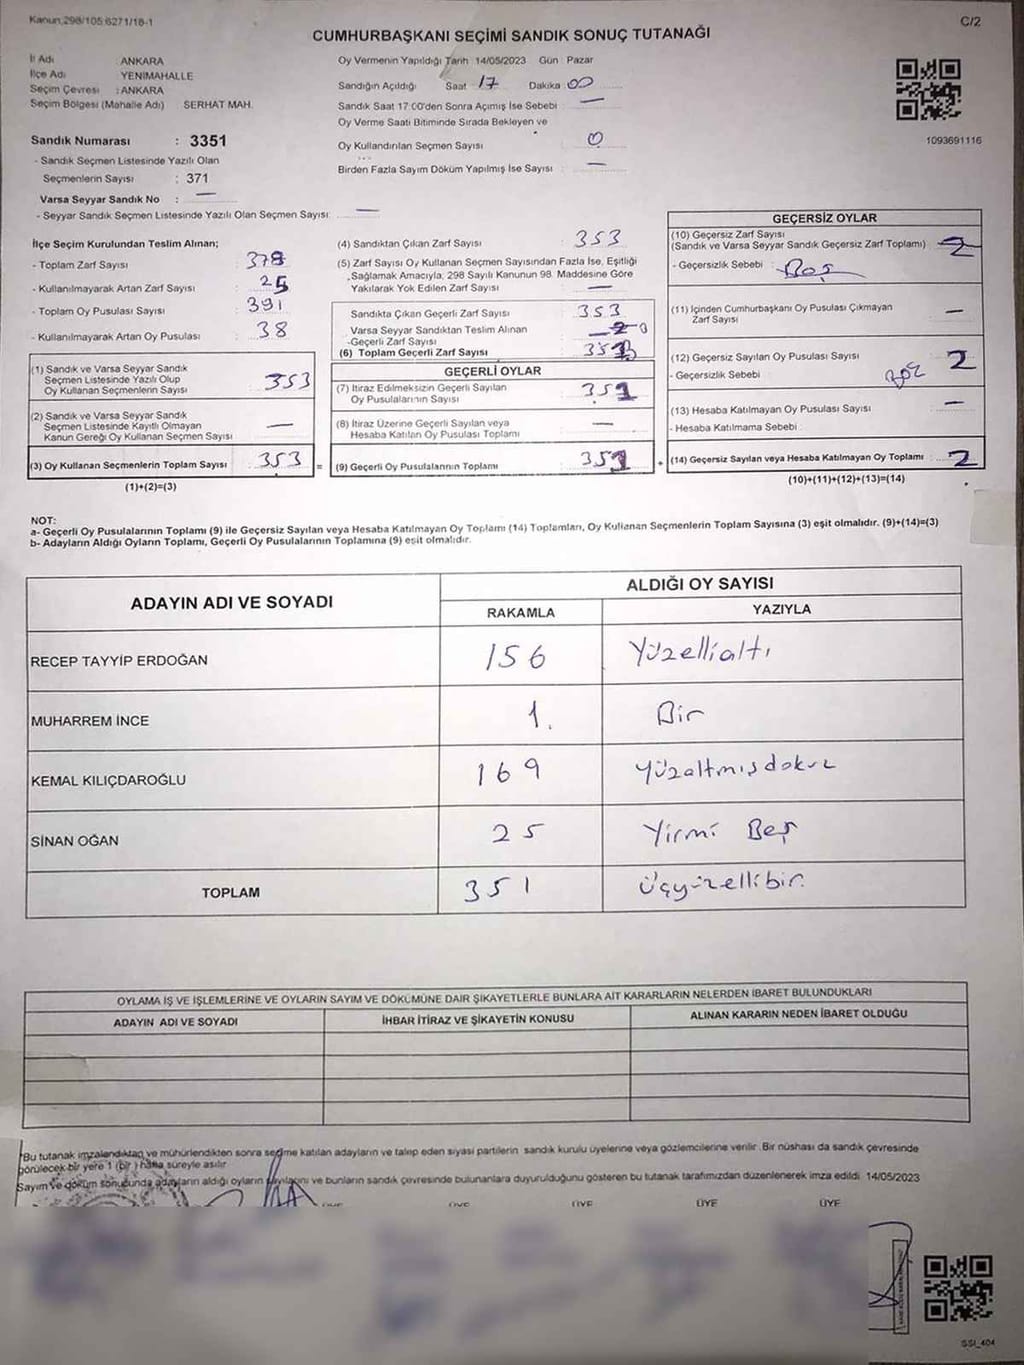 Kanun,298/105;6271/18-1
C/2
CUMHURBAŞKANI SEÇİMİ SANDIK SONUÇ TUTANAĞI
İl Adı : ANKARA
İlçe Adı : YENİMAHALLE
Seçim Çevresi : ANKARA
Seçim Bölgesi (Mahalle Adı) SERHAT MAH.
Sandık Numarası : 3351
- Sandık Seçmen Listesinde Yazılı Olan
Seçmenlerin Sayısı : 371
Varsa Seyyar Sandık No : —
- Seyyar Sandık Seçmen Listesinde Yazılı Olan Seçmen Sayısı: —
Oy Vermenin Yapıldığı Tarih 14/05/2023 Gün Pazar
Sandığın Açıldığı Saat 17 Dakika 00
Sandık Saat 17:00'den Sonra Açımış İse Sebebi : —
Oy Verme Saati Bitiminde Sırada Bekleyen ve
Oy Kullandırılan Seçmen Sayısı : 0
Birden Fazla Sayım Döküm Yapılmış İse Sayısı : —
1093691116
İlçe Seçim Kurulundan Teslim Alınan;
- Toplam Zarf Sayısı : 378
- Kullanılmayarak Artan Zarf Sayısı : 25
- Toplam Oy Pusulası Sayısı : 391
- Kullanılmayarak Artan Oy Pusulası : 38
(1) Sandık ve Varsa Seyyar Sandık
Seçmen Listesinde Yazılı Olup
Oy Kullanan Seçmenlerin Sayısı : 353
(2) Sandık ve Varsa Seyyar Sandık
Seçmen Listesinde Kayıtlı Olmayan
Kanun Gereği Oy Kullanan Seçmen Sayısı : —
(3) Oy Kullanan Seçmenlerin Toplam Sayısı : 353 =
(1)+(2)=(3)
(4) Sandıktan Çıkan Zarf Sayısı : 353
(5) Zarf Sayısı Oy Kullanan Seçmen Sayısından Fazla İse, Eşitliği
Sağlamak Amacıyla, 298 Sayılı Kanunun 98. Maddesine Göre
Yakılarak Yok Edilen Zarf Sayısı : —
Sandıkta Çıkan Geçerli Zarf Sayısı : 353
Varsa Seyyar Sandıktan Teslim Alınan
-Geçerli Zarf Sayısı : 0
(6) Toplam Geçerli Zarf Sayısı : 353
GEÇERLİ OYLAR
(7) İtiraz Edilmeksizin Geçerli Sayılan
Oy Pusulalarının Sayısı : 351
(8) İtiraz Üzerine Geçerli Sayılan veya
Hesaba Katılan Oy Pusulası Toplamı : —
(9) Geçerli Oy Pusulalarının Toplamı : 351 +
GEÇERSİZ OYLAR
(10) Geçersiz Zarf Sayısı
(Sandık ve Varsa Seyyar Sandık Geçersiz Zarf Toplamı) 2
- Geçersizlik Sebebi : Boş
(11) İçinden Cumhurbaşkanı Oy Pusulası Çıkmayan
Zarf Sayısı : —
(12) Geçersiz Sayılan Oy Pusulası Sayısı : 2
- Geçersizlik Sebebi : Boş
(13) Hesaba Katılmayan Oy Pusulası Sayısı : —
- Hesaba Katılmama Sebebi :
(14) Geçersiz Sayılan veya Hesaba Katılmayan Oy Toplamı : 2
(10)+(11)+(12)+(13)=(14)
NOT:
a- Geçerli Oy Pusulalarının Toplamı (9) ile Geçersiz Sayılan veya Hesaba Katılmayan Oy Toplamı (14) Toplamları, Oy Kullanan Seçmenlerin Toplam Sayısına (3) eşit olmalıdır. (9)+(14)=(3)
b- Adayların Aldığı Oyların Toplamı, Geçerli Oy Pusulalarının Toplamına (9) eşit olmalıdır.
ADAYIN ADI VE SOYADI
ALDIĞI OY SAYISI
RAKAMLA YAZIYLA
RECEP TAYYİP ERDOĞAN 156 Yüzellialtı
MUHARREM İNCE 1. Bir
KEMAL KILIÇDAROĞLU 169 Yüzaltmışdokuz
SİNAN OĞAN 25 Yirmi Beş
TOPLAM 351 Üçyüzellibir.
OYLAMA İŞ VE İŞLEMLERİNE VE OYLARIN SAYIM VE DÖKÜMÜNE DAİR ŞİKAYETLERLE BUNLARA AİT KARARLARIN NELERDEN İBARET BULUNDUKLARI
ADAYIN ADI VE SOYADI İHBAR İTİRAZ VE ŞİKAYETİN KONUSU ALINAN KARARIN NEDEN İBARET OLDUĞU
*Bu tutanak imzalendıktan ve mühürlendikten sonra seçime katılan adayların ve talep eden siyasi partilerin sandık kurulu üyelerine veya gözlemcilerine verilir. Bir nüshası da sandık çevresinde
görülecek bir yere 1 (bir) hafta süreyle asılır
Sayım ve döküm sonucunda adayların aldığı oyların sayılarını ve bunların sandık çevresinde bulunanlara duyurulduğunu gösteren bu tutanak tarafımızdan düzenlenerek imza edildi 14/05/2023
ÜYE ÜYE ÜYE ÜYE ÜYE
SSI_404